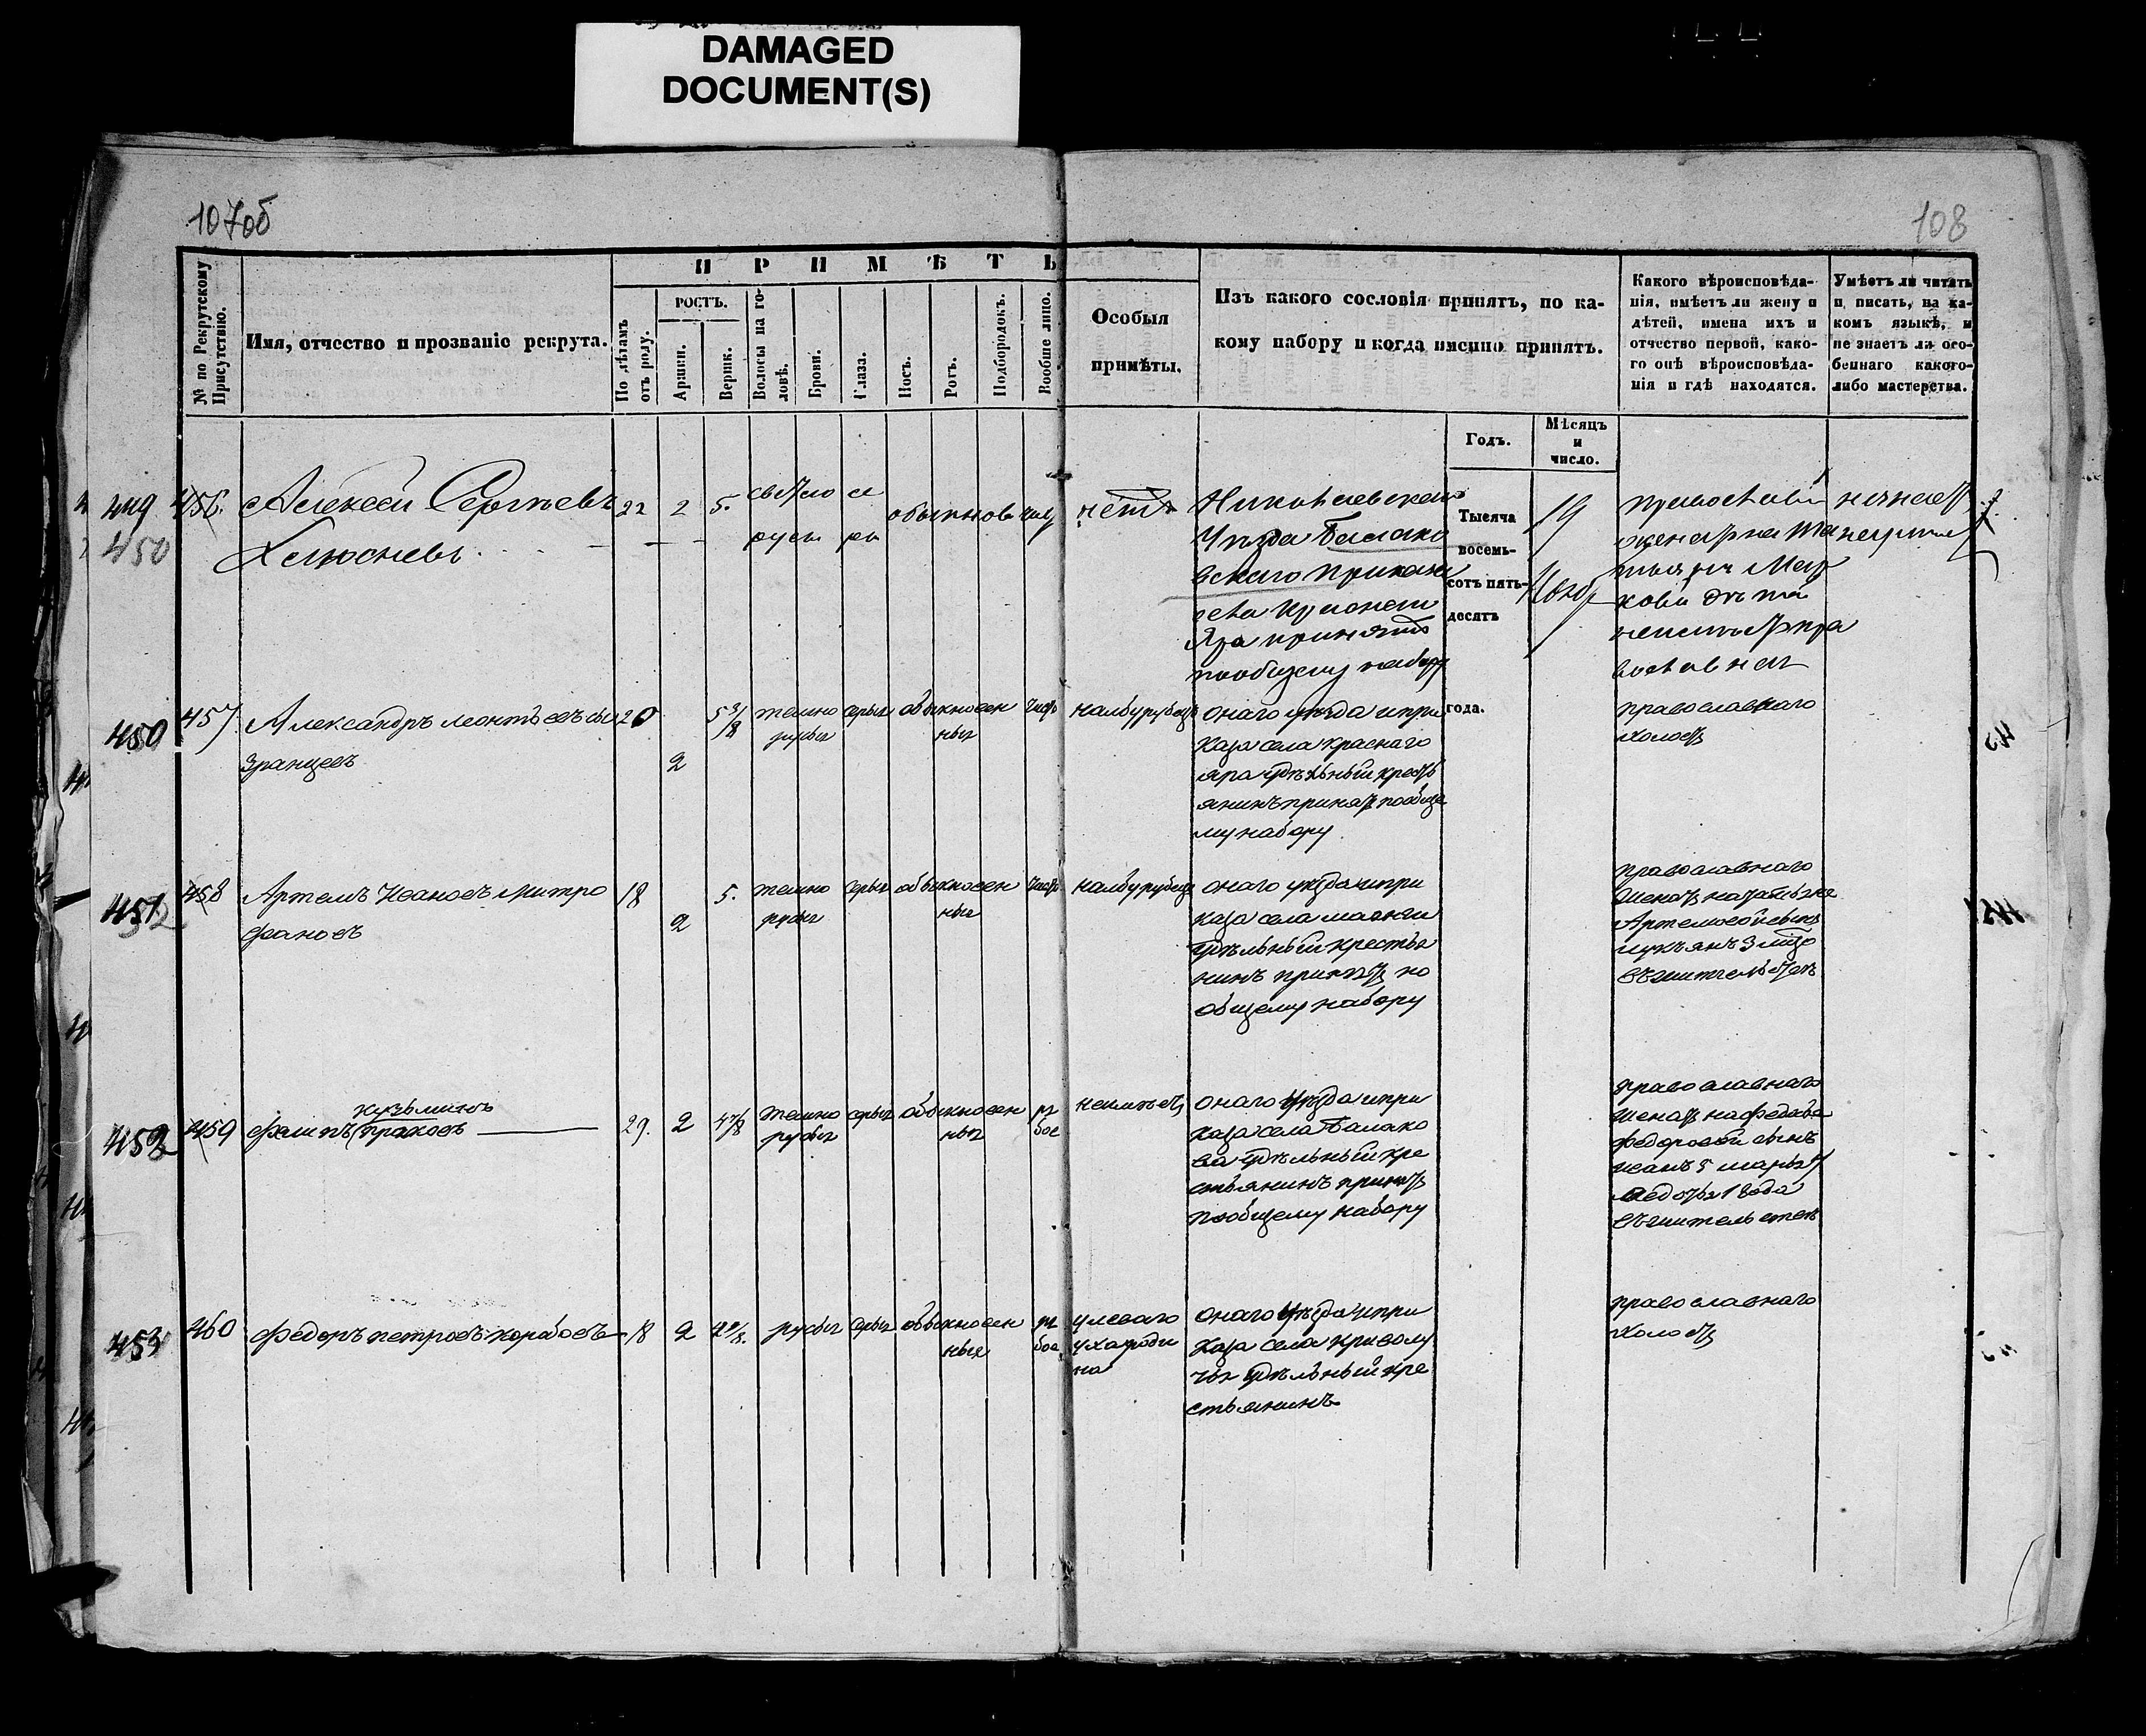 DAMAGED
DOCUMENT(S)
107об
108
№ по Рекрутскому Присутствію.
Имя, отчество и прозваніе рекрута.
ПРИМѢТЫ
По лѣтамъ отъ роду.
РОСТЪ.
Аршин.
Вершк.
Волосы на головѣ.
Брови.
Глаза.
Носъ.
Ротъ.
Подбородокъ.
Вообще лицо.
Особыя
примѣты.
Изъ какого сословія принятъ, по ка-
кому набору и когда именно принятъ.
Какого вѣроисповѣда-
нія, имѣетъ ли жену и
дѣтей, имена ихъ и
отчество первой, како-
го онѣ вѣроисповѣда-
нія и гдѣ находятся.
Умѣетъ ли читать
и писать, на ка-
комъ языкѣ, и
не знаетъ ли осо-
беннаго какого-
либо мастерства.
Годъ.
Мѣсяцъ
и
число.
449
450
456.
Алексей Сергѣевъ
22
2
5.
светло
русы
се
ры
обыкнов
нетъ
Николаевскаго
Уѣзда Балако
вского Приказа
села Краснаго
Яра принятъ
пообщему набору
Тысяча
восемь-
сотъ пять-
десятъ
года.
19
православный
450
457
Александръ леонтьевъ сы
зранцевъ
20
2
5 3/8
темно
русыя
серыя
обыкновен
ныя
чист
онаго уѣзда и при
каза села краснаго
яра удѣльный кресть
янинъ принятъ пообще
му набору
православнаго
холостъ
451
458
Артемъ Ивановъ митро
фановъ
18
2
5.
темно
русыя
серыя
обыкновен
ныя
чист
онаго уѣзда и при
каза села
удѣльный крестья
нинъ принятъ по
общему набору
православнаго
женатъ на
Артемовой сынъ
лукъянъ 3
въ жительстве
452
459
кузьминъ
Филипъ
29.
2
4 7/8
темно
русыя
серыя
обыкновен
ныя
ря
бое
неимѣетъ
онаго уѣзда и при
каза села Балако
ва удѣльный кре
стьянинъ принятъ
пообщему набору
православнаго
женатъ на
федоровой сынъ
иванъ 5
федотъя 1 года
въ жительстве
453
460
Федоръ петровъ корабовъ
18
2
русыя
серыя
обыкновен
ныя
ря
бое
у леваго
уха роди
на
онаго уѣзда и при
каза села криволу
чья удѣльный кре
стьянинъ
православнаго
холостъ